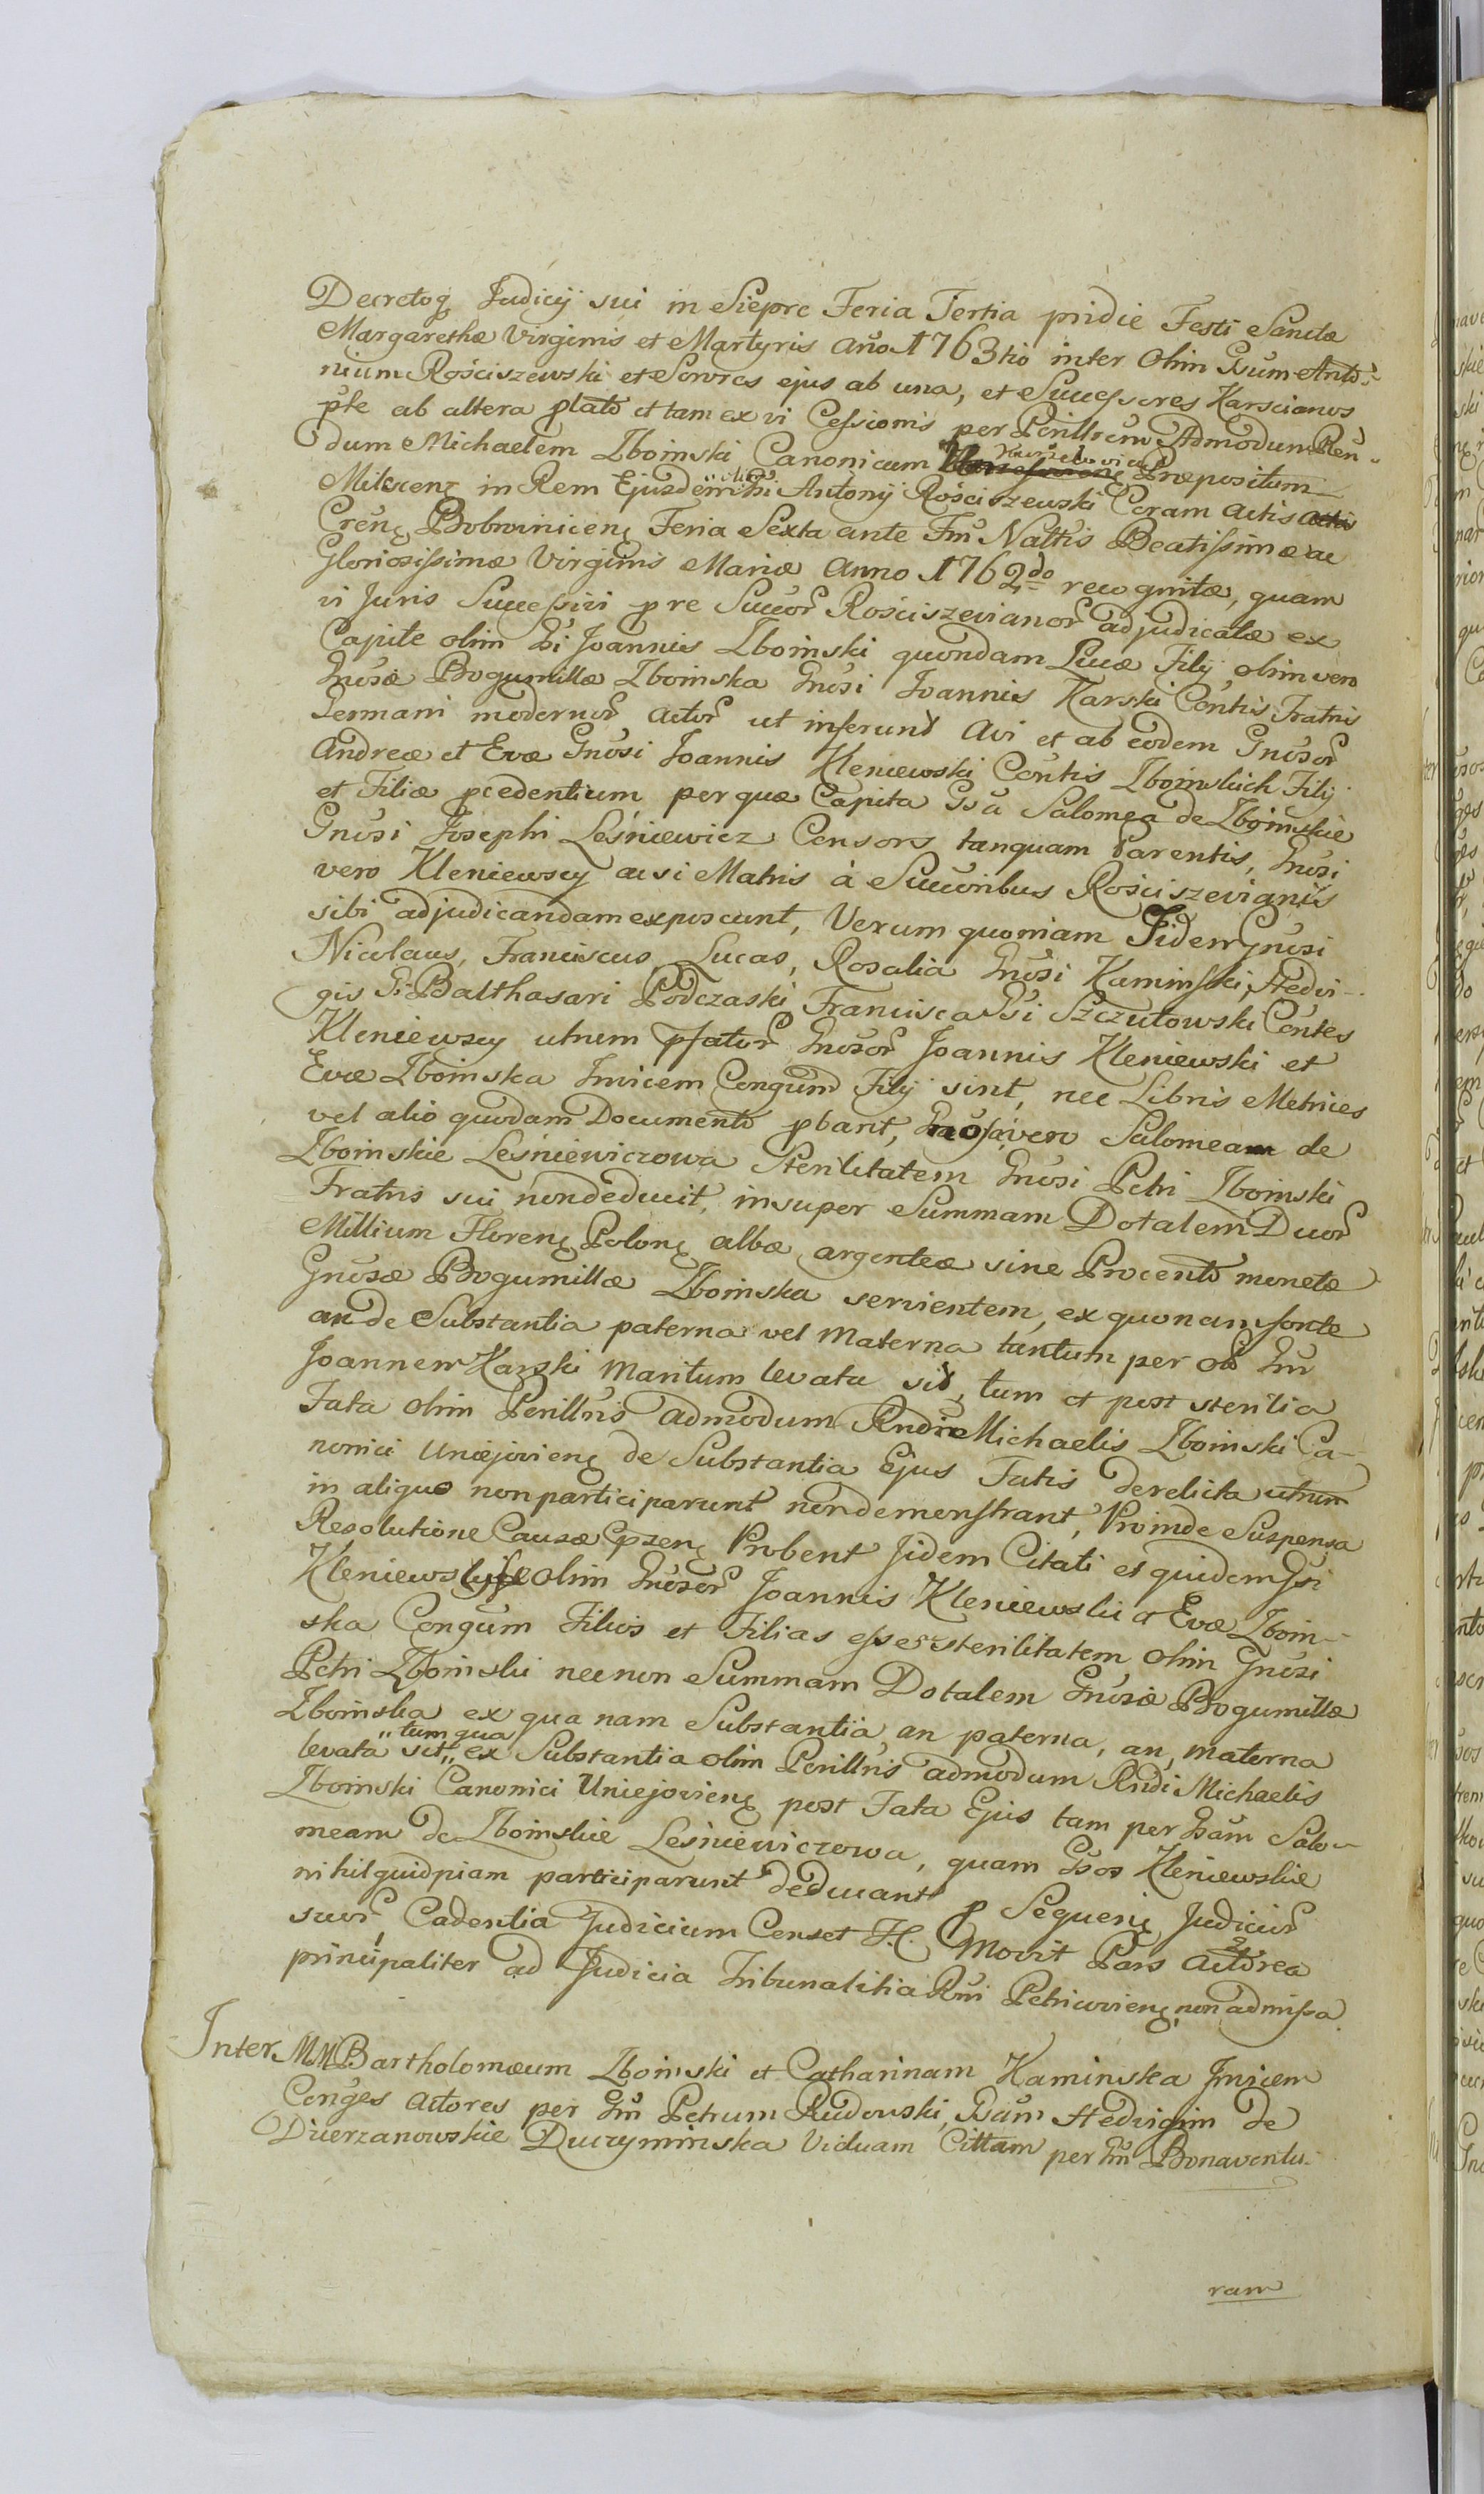 Decretoq Judicij sui in Sieprc Feria Tertia pridie Festi Sanctæ
Margarethæ Virginis et Martyris Año 1763tio inter Olim Gsum Anto-
nium Rościszewski et Sorores ejus ab una, et Successores Karscianos
pte ab altera plato et tam ex vi Cessionis per Perillrem Admodum Ren-
dum Michaelem Zboinski Canonicum Præpositum
Milscenz in Rem Ejusdem olim Gsi Antonij Rościszewski Coram Actis
Crenz Bobrownicenz Feria Sexta ante Fm Naltis Beatissimæ ac
Gloriosissimæ Virginis Mariæ Anno 1762do recognitæ, quam
vi Juris Successivi p re Succor Rościszevianor adjudicatæ ex
Capite olim Gsi Joannis Zboinski quondam Lucæ Filij, olim vero
Gnosæ Bogumillæ Zboinska Gnosi Joannis Karski Contis Fratris
Germani modernor Actor ut inferunt Avi et ab eodem Gnosor
Andreæ et Evæ Gnosi Joannis Kleniewski Contis Zboinskich Filij
et Filiæ pcedentium per quæ Capita Gsa Salomea de Zboinskie
Gnosi Josephi Leśniewicz Consors tanquam Parentis, Gnosi
vero Kleniewscy ac si Matris à Succoribus Rościszevianis
sibi adjudicandam exposcunt, Verum quoniam Jidem Gnosi
Nicolaus, Franciscus, Lucas, Rosalia Gnosi Kaminski, Hedvi-
gis Gsi Balthasari Podczaski, Francisca Gsi Szczutowski Contes
Kleniewscy utrum pfator Gnosor Joannis Kleniewski et
Evæ Zboinska Invicem Congum Filij sint, nec Libris Metrices
vel alio quodam Documento pbant, Gnosa vero Salomeam de
Zboinskie Leśniewiczowa Sterilitatem Gnosi Petri Zboinski
Fratris sui non deducit, insuper Summam Dotalem Duor
Millium Florenz Polonz albæ argenteæ sine Procento monetæ
Gnosæ Bogumillæ Zboinska servientem, ex quonam fonte
an de Substantia paterna vel Materna tantum per olim Gm
Joannem Karski Maritum levata sit, tum et post sterilia
Fata olim Perillris admodum Rndi Michaelis Zboinski Ca-
nonici Uniejovienz de Substantia Ejus Fatis derelicta utrum
in aliquo non participarunt non demonstrant, Proinde Suspensa
Resolutione Causæ pzenz Probent Jidem Citati et quidem Gsi
Kleniewscy se olim Gnosor Joannis Kleniewski et Evæ Zboin-
ska Congum Filios et Filias esse sterilitatem olim Gnosi
Petri Zboinski necnon Summam Dotalem Gnosæ Bogumillæ
Zboinska ex qua nam Substantia, an paterna, an, materna
levata sit, "tum qua" ex Substantia olim Perillris admodum Rndi Michaelis
Zboinski Canonici Uniejovienz post Fata Ejus tam per Gsam Salo-
meam de Zboinskie Leśniewiczowa, quam Gsos Kleniewskie
nihil quidpiam participarunt deducant p Sequenz Judicior
suor Cadentia Judicium Censet H. Movit Pars Actorea
principaliter ad Judicia Tribunalitia Rni Petricovienz non admissa.
Inter MM Bartholomæum Zboinski et Catharinam Kaminska Invicem
Conges Actores per Gm Petrum Rudowski, Gsam Hedvigim de
Dzierzanowskie Duczyminska Viduam Cittam per Gm Bonaventu-
ram